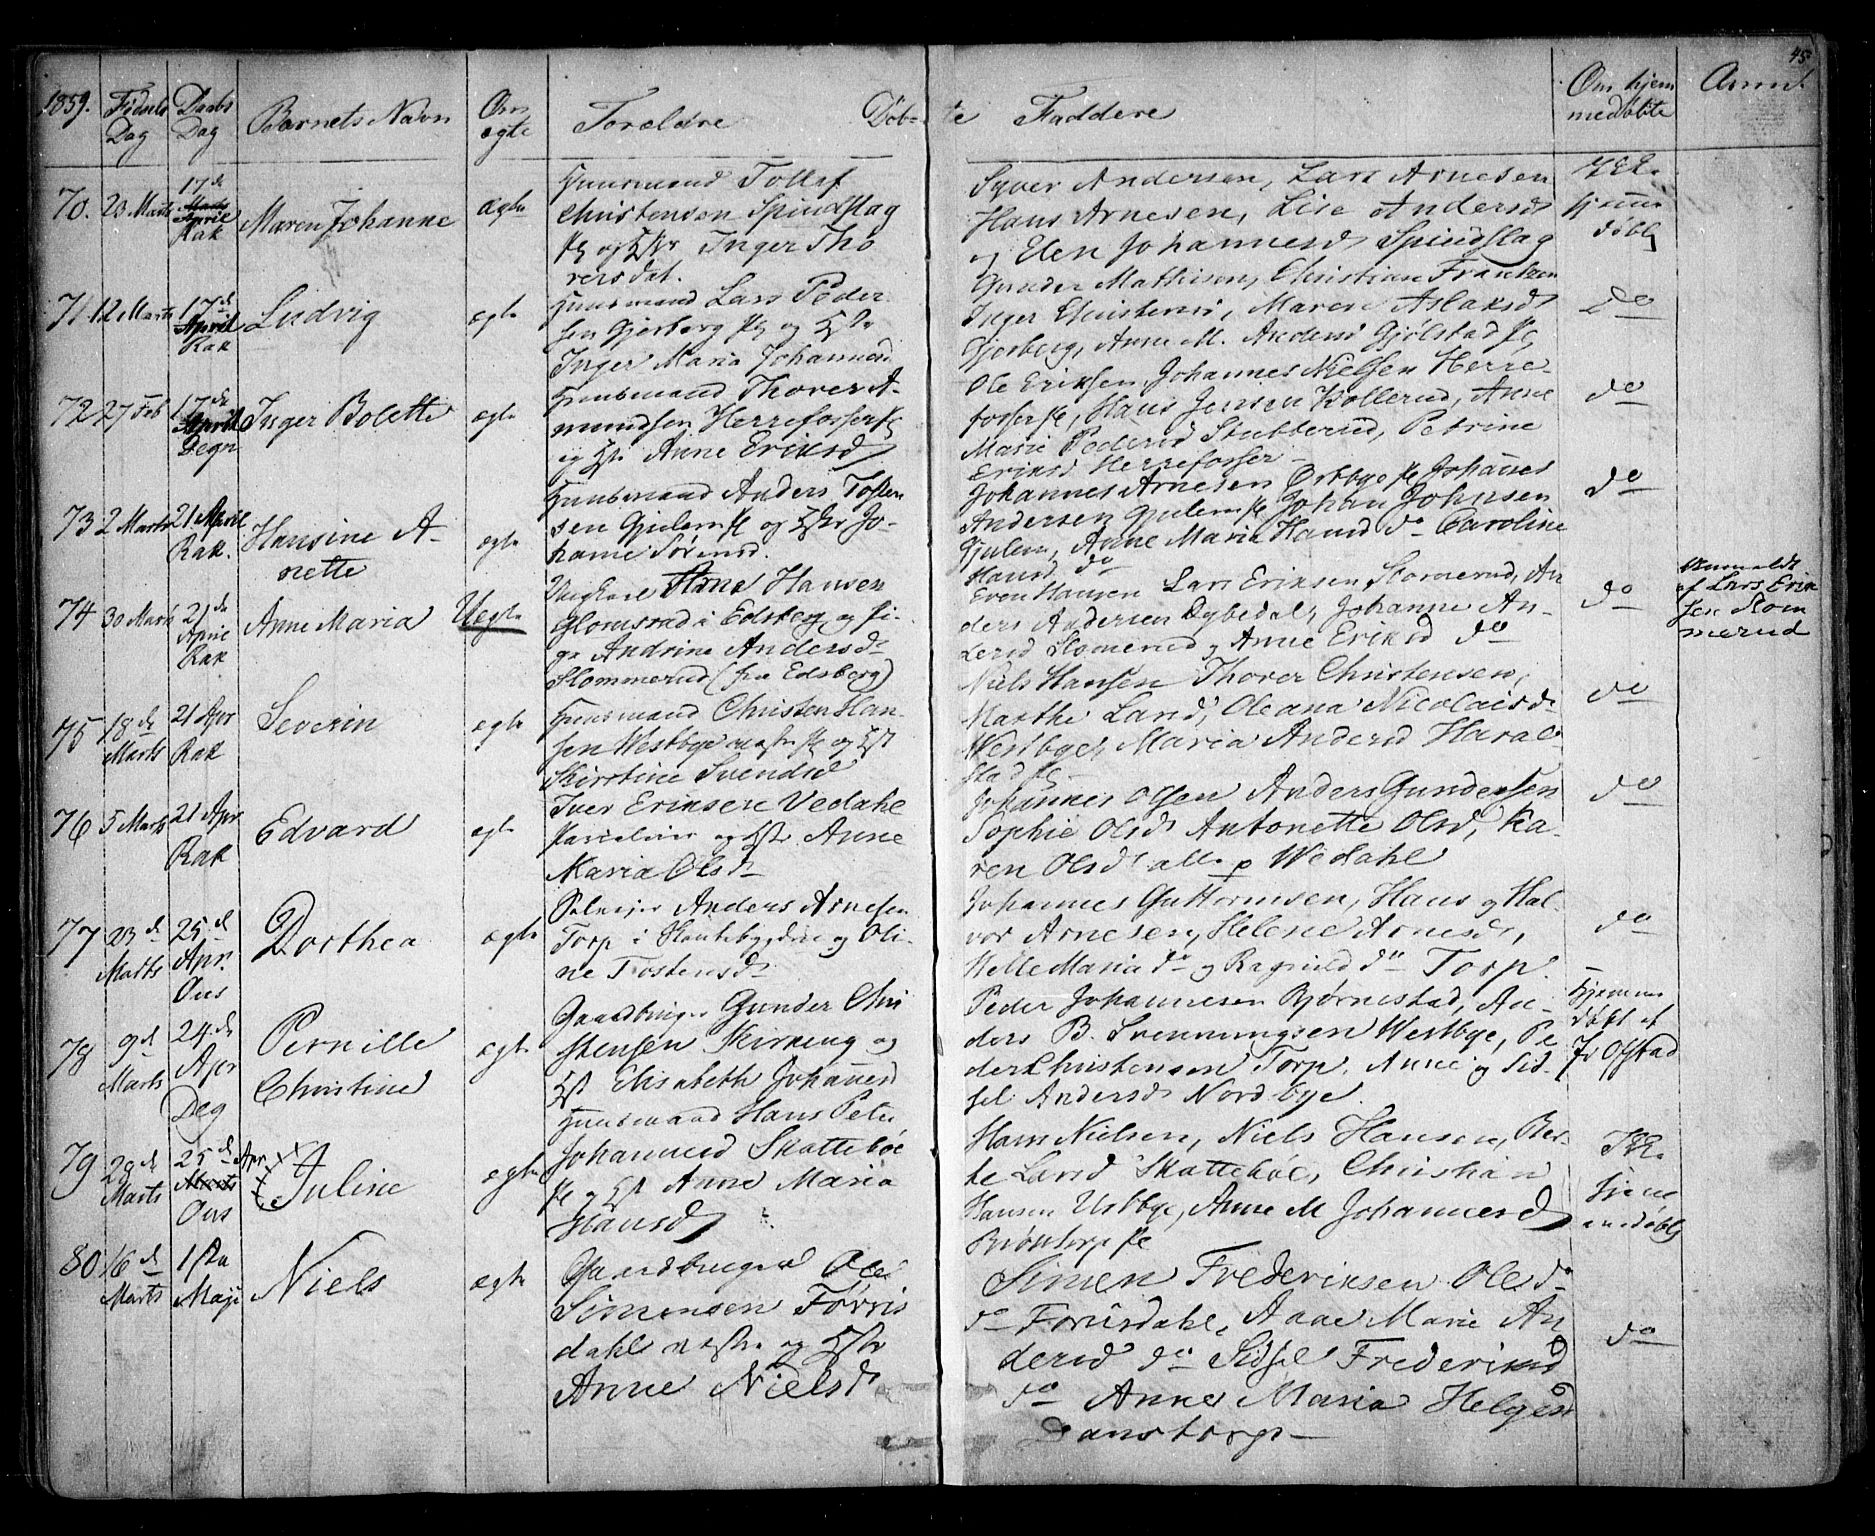 45
1859. Fødsels Dag Daabs Dag Barnets Navn Om ægte Forældre Døbte Faddere Om hjemmedøbte Anm.
70. 23 Marts 17de April Rak Maren Johanne ægte
Huusmand Tollef
Christensen Spindslag
og Inger Tho
rersdat.
Syver Andersen, Lars Arnesen
Hans Arnesen, Lise Andersd
og Elen Johannesd Spindslag
Ikke
hjemme
døbt
71 12 Marts 17de April Rak Ludvig ægte
Huusmand Lars Peder
sen Gjerberg og
Inger Maria Johannesd
Gunder Mathisen, Christian Frantzen
Inger Christensd, Maren Aslaksd
Gjerberg, Anne M. Andersd Gjølstad
do
72 27 Feb 17de April Degn Inger Bolette ægte
Huusmand Thorer A-
mundsen Herrefosser
og Anne Eriksd
Ole Eriksen, Johannes Nielsen Herre-
fosser, Hans Jensen Kollerud, Anne
Marie Pedersd Stubberud, Petrine
Eriksd Herrefosser
do
73 2 Marts 21 April Rak. Hansine A-
nette ægte
Huusmand Anders Tosten
sen Gjulem og Jo-
hanne Sørensd.
Johannes Arnesen Ørbye Johannes
Andersen Gjulem Johan Johnsen
Gjulem, Anne Maria Hansd do Caroline
Hansd do
do
74 30 Marts 21de April Rak Anne Maria Uegte
Ungkarl Arne Hansen
Glomsrød i Edsberg og Pi-
ge Andrine Andersd
Slommerud (fra Edsberg)
Even Hansen Lars Eriksen Slomerud, An
ders Andersen Dybedal, Johanne An-
dersd Slomerud og Anne Eriksd do
do
Anmeldt
af Lars Erik
sen Slom
merud
75 18de Marts 21 Apr Rak Severin ægte
Huusmand Christen Han-
sen Westbye og
Kirstine Svendsd
Niels Hansen Thorer Christensen,
Marthe Larsd, Oleana Nicolaisd
Westbye, Maria Andersd Haral-
stad
do
76 5 Marts 21 Apr Rak Edvard ægte
Iver Eriksen Vedahl
og Anne
Maria Olsd
Johannes Olsen Anders Gundersen
Sophie Olsd Antonette Olsd, Ka-
ren Olsd alle p Wedahl
do
77 23d Marts 25d Apr. Ous Dorthea ægte
Selveier Anders Arnesen
Torp i Hautebygden og Oli-
ne Tostensd
Johannes Guttormsen, Hans og Hal-
vor Arnesen, Helene Arnesd,
Helle Maria do og Ragnild do Torp.
do
78 9d Marts 24de Apr Deg Pernille
Christine ægte
Gaardbruger Gunder Chri
stensen Kirkeng og
Elisabeth Johannesd
Peder Johannesen Bjørnestad, An-
ders B. Svenningsen Westbye, Pe
der Christensen Torp, Anne og Sid-
sel Andersd Nordbye.
Hjemme
døbt af
J. Ofstad
79 28d Marts 25d Apr Marts Ous Juline ægte
Huusmand Hans Peter
Johannesd Skattebøe
og Anne Maria
Hansd
Hans Nielsen, Niels Hansen, Ber-
te Larsd Skattebøe, Christian
Hansen Ustbye, Anne M Johannesd
Brøntorp
Ikke
hjem
medøbt
80 16d Marts 1ste Maji Niels ægte
Gaardbruger Ole
Simensen Førris
dahl og
Anne Nielsd
Simen Frederiksen Ole do
do Forrisdahl, Aase Marie An
dersd do Sidsel Frederiksd
do Anne Maria Helgesd
Dansborg
do